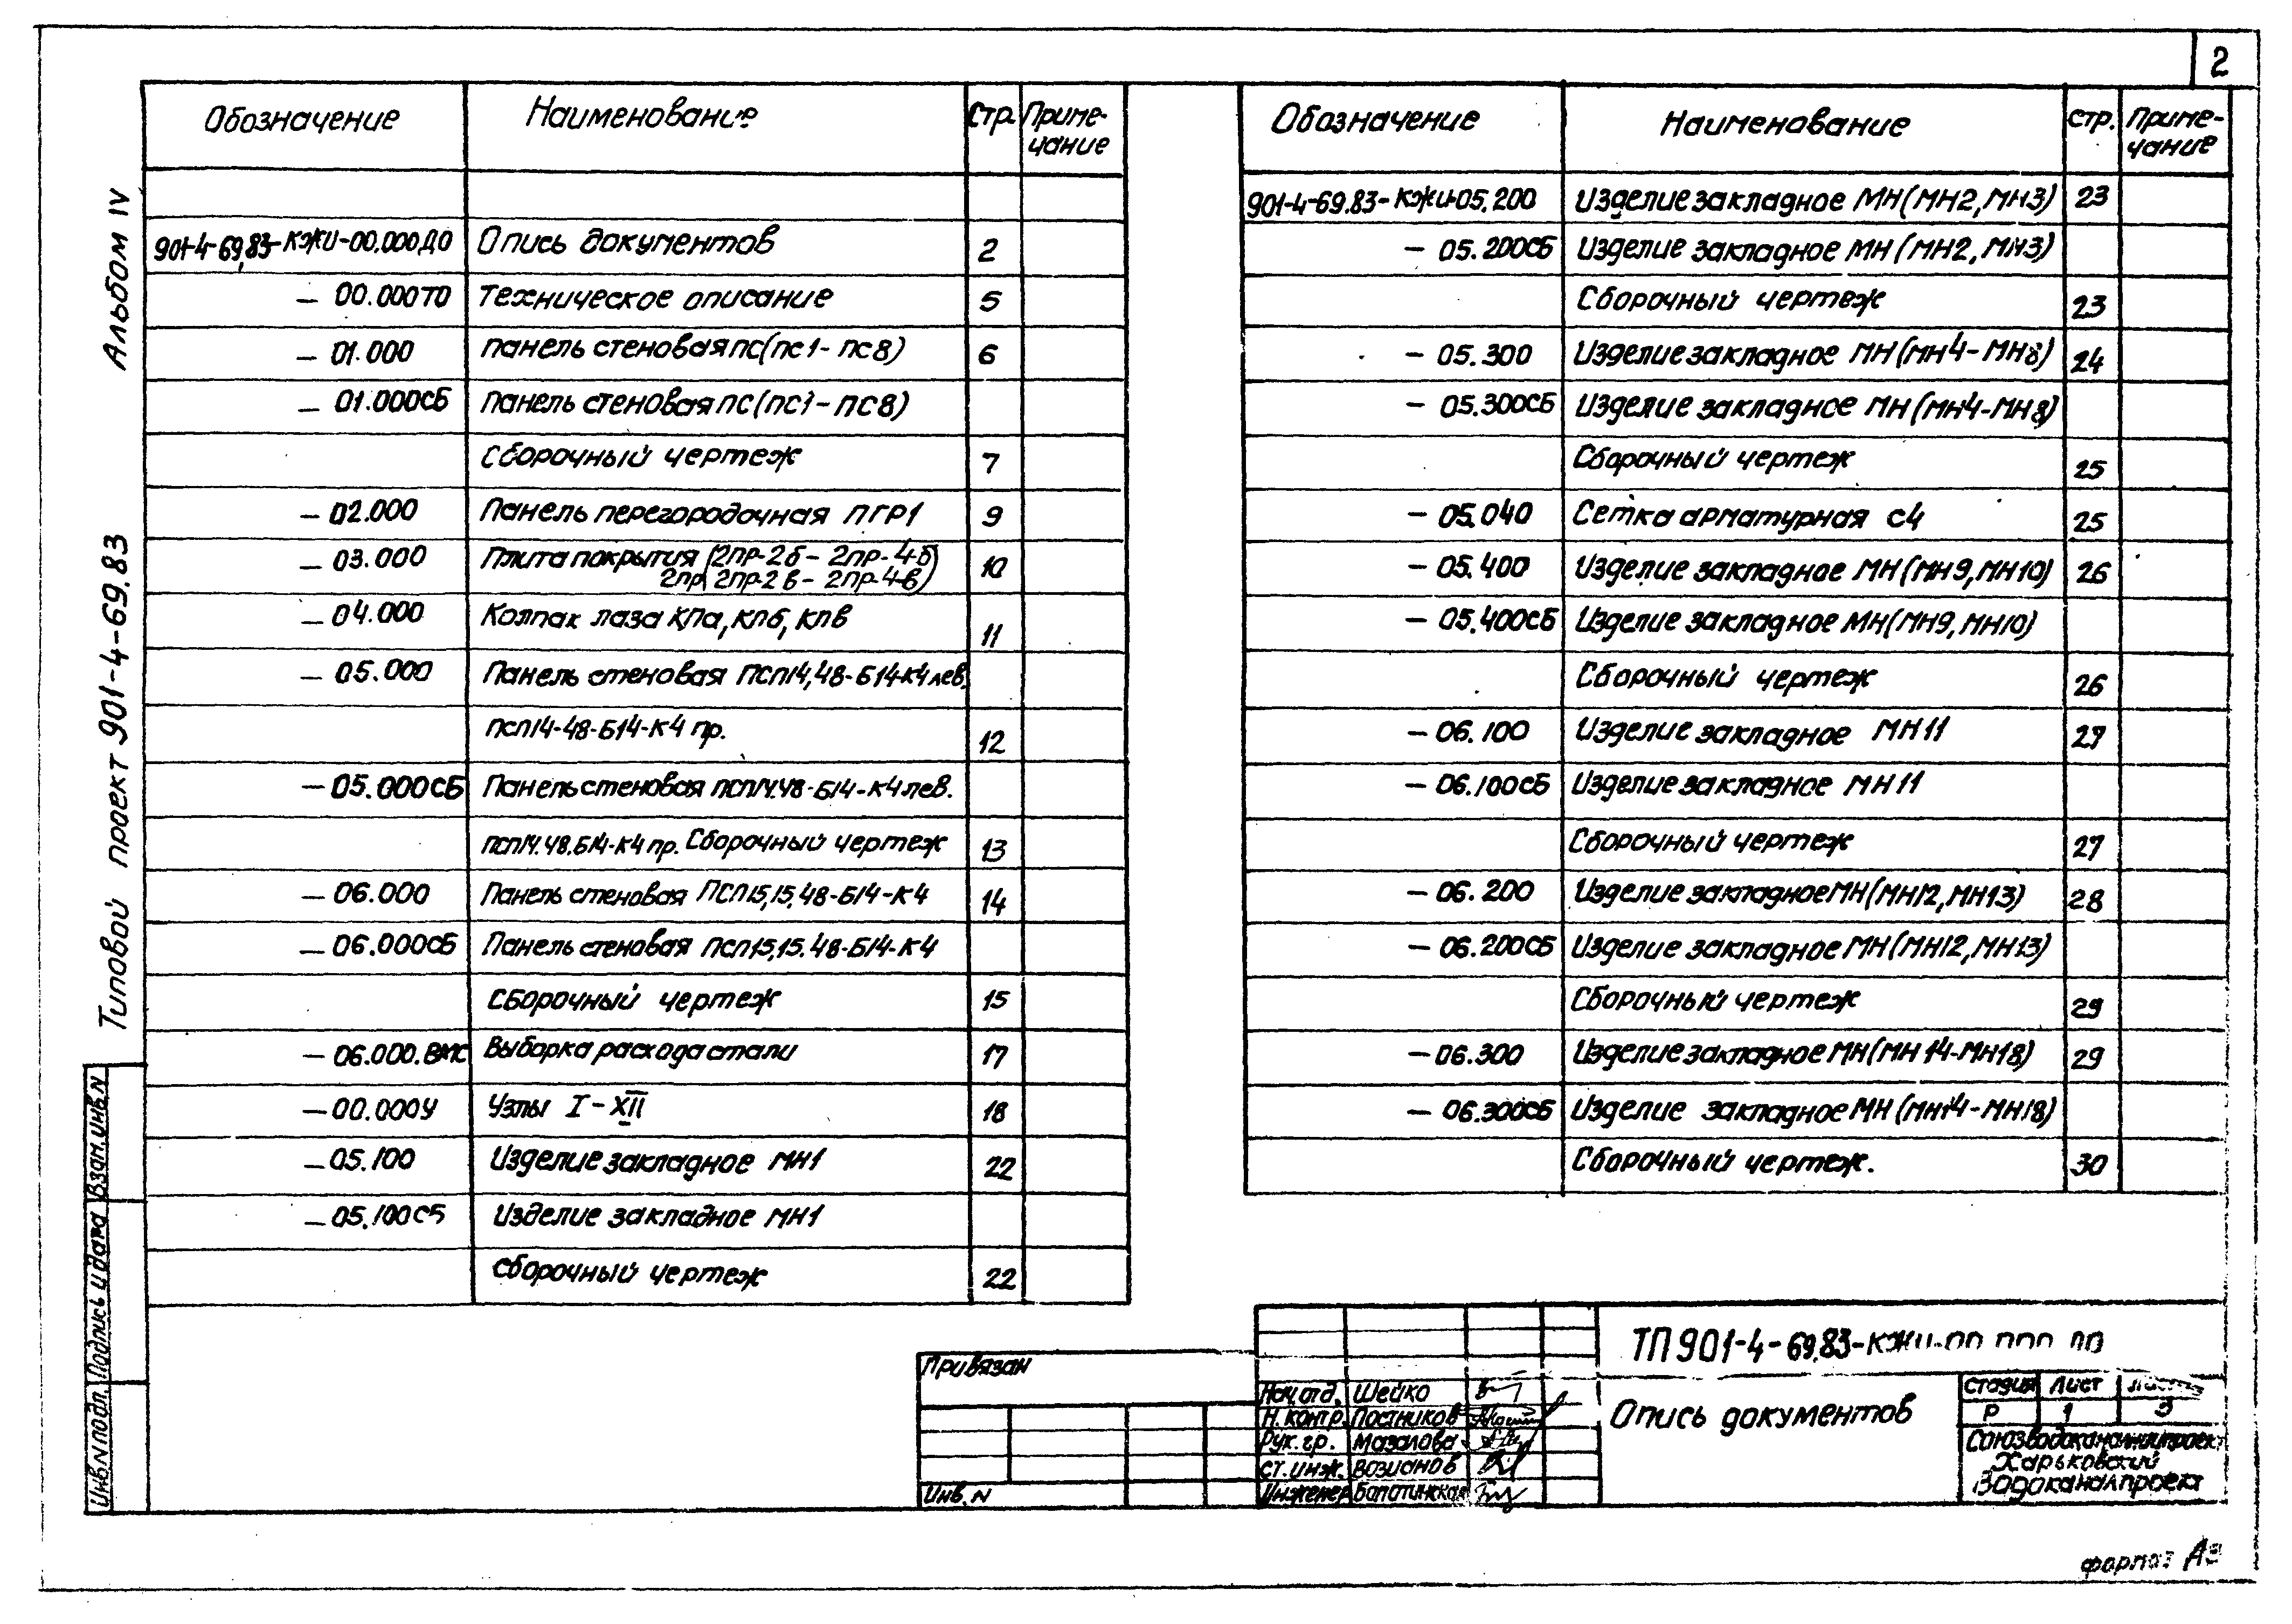 2
Альбом IV
Типовой проект 901-4-69.83
Взам.инв.N
Подпись и дата
Инв.N подл.
Обозначение Наименование Стр. Приме-
чание
901-4-69.83-КЖИ-00.000ДО Опись документов 2
- 00.000ТО Техническое описание 5
- 01.000 Панель стеновая ПС(ПС1-ПС8) 6
- 01.000СБ Панель стеновая ПС(ПС1-ПС8)
Сборочный чертеж 7
- 02.000 Панель перегородочная ПГР1 9
- 03.000 Плита покрытия (2ПР-2б - 2ПР-4-б
2пр 2ПР-2в - 2ПР-4-в) 10
- 04.000 Колпак лаза КПа, КПб, КПв 11
- 05.000 Панель стеновая ПСП14,48-Б14-К4 лев.
ПСП14-48-Б14-К4 пр. 12
- 05.000СБ Панель стеновая ПСП14.48-Б14-К4 лев.
ПСП14.48.Б14-К4 пр. Сборочный чертеж 13
- 06.000 Панель стеновая ПСП15,15,48-Б14-К4 14
- 06.000СБ Панель стеновая ПСП15,15.48-Б14-К4
Сборочный чертеж 15
- 06.000.ВМС Выборка расхода стали 17
- 00.000У Узлы I-XII 18
- 05.100 Изделие закладное МН1 22
- 05.100СБ Изделие закладное МН1
Сборочный чертеж 22
Обозначение Наименование Стр. Приме-
чание
901-4-69.83-КЖИ-05.200 Изделие закладное МН(МН2,МН3) 23
- 05.200СБ Изделие закладное МН(МН2,МН3)
Сборочный чертеж 23
- 05.300 Изделие закладное МН(МН4-МН8) 24
- 05.300СБ Изделие закладное МН(МН4-МН8)
Сборочный чертеж 25
- 05.040 Сетка арматурная С4 25
- 05.400 Изделие закладное МН(МН9,МН10) 26
- 05.400СБ Изделие закладное МН(МН9,МН10)
Сборочный чертеж 26
- 06.100 Изделие закладное МН11 27
- 06.100СБ Изделие закладное МН11
Сборочный чертеж 27
- 06.200 Изделие закладное МН(МН12,МН13) 28
- 06.200СБ Изделие закладное МН(МН12,МН13)
Сборочный чертеж 29
- 06.300 Изделие закладное МН(МН14-МН18) 29
- 06.300СБ Изделие закладное МН(МН14-МН18)
Сборочный чертеж. 30
Привязан
Инв. N
ТП 901-4-69.83-КЖИ
Нач.отд. Шейко
Н.контр. Постников
Рук.гр. Мазалова
Ст.инж. Возианов
Инженер
Опись документов
Стадия Лист
Р 1 3
Союзводоканалниипроект
Харьковский
Водоканалпроект
формат А3